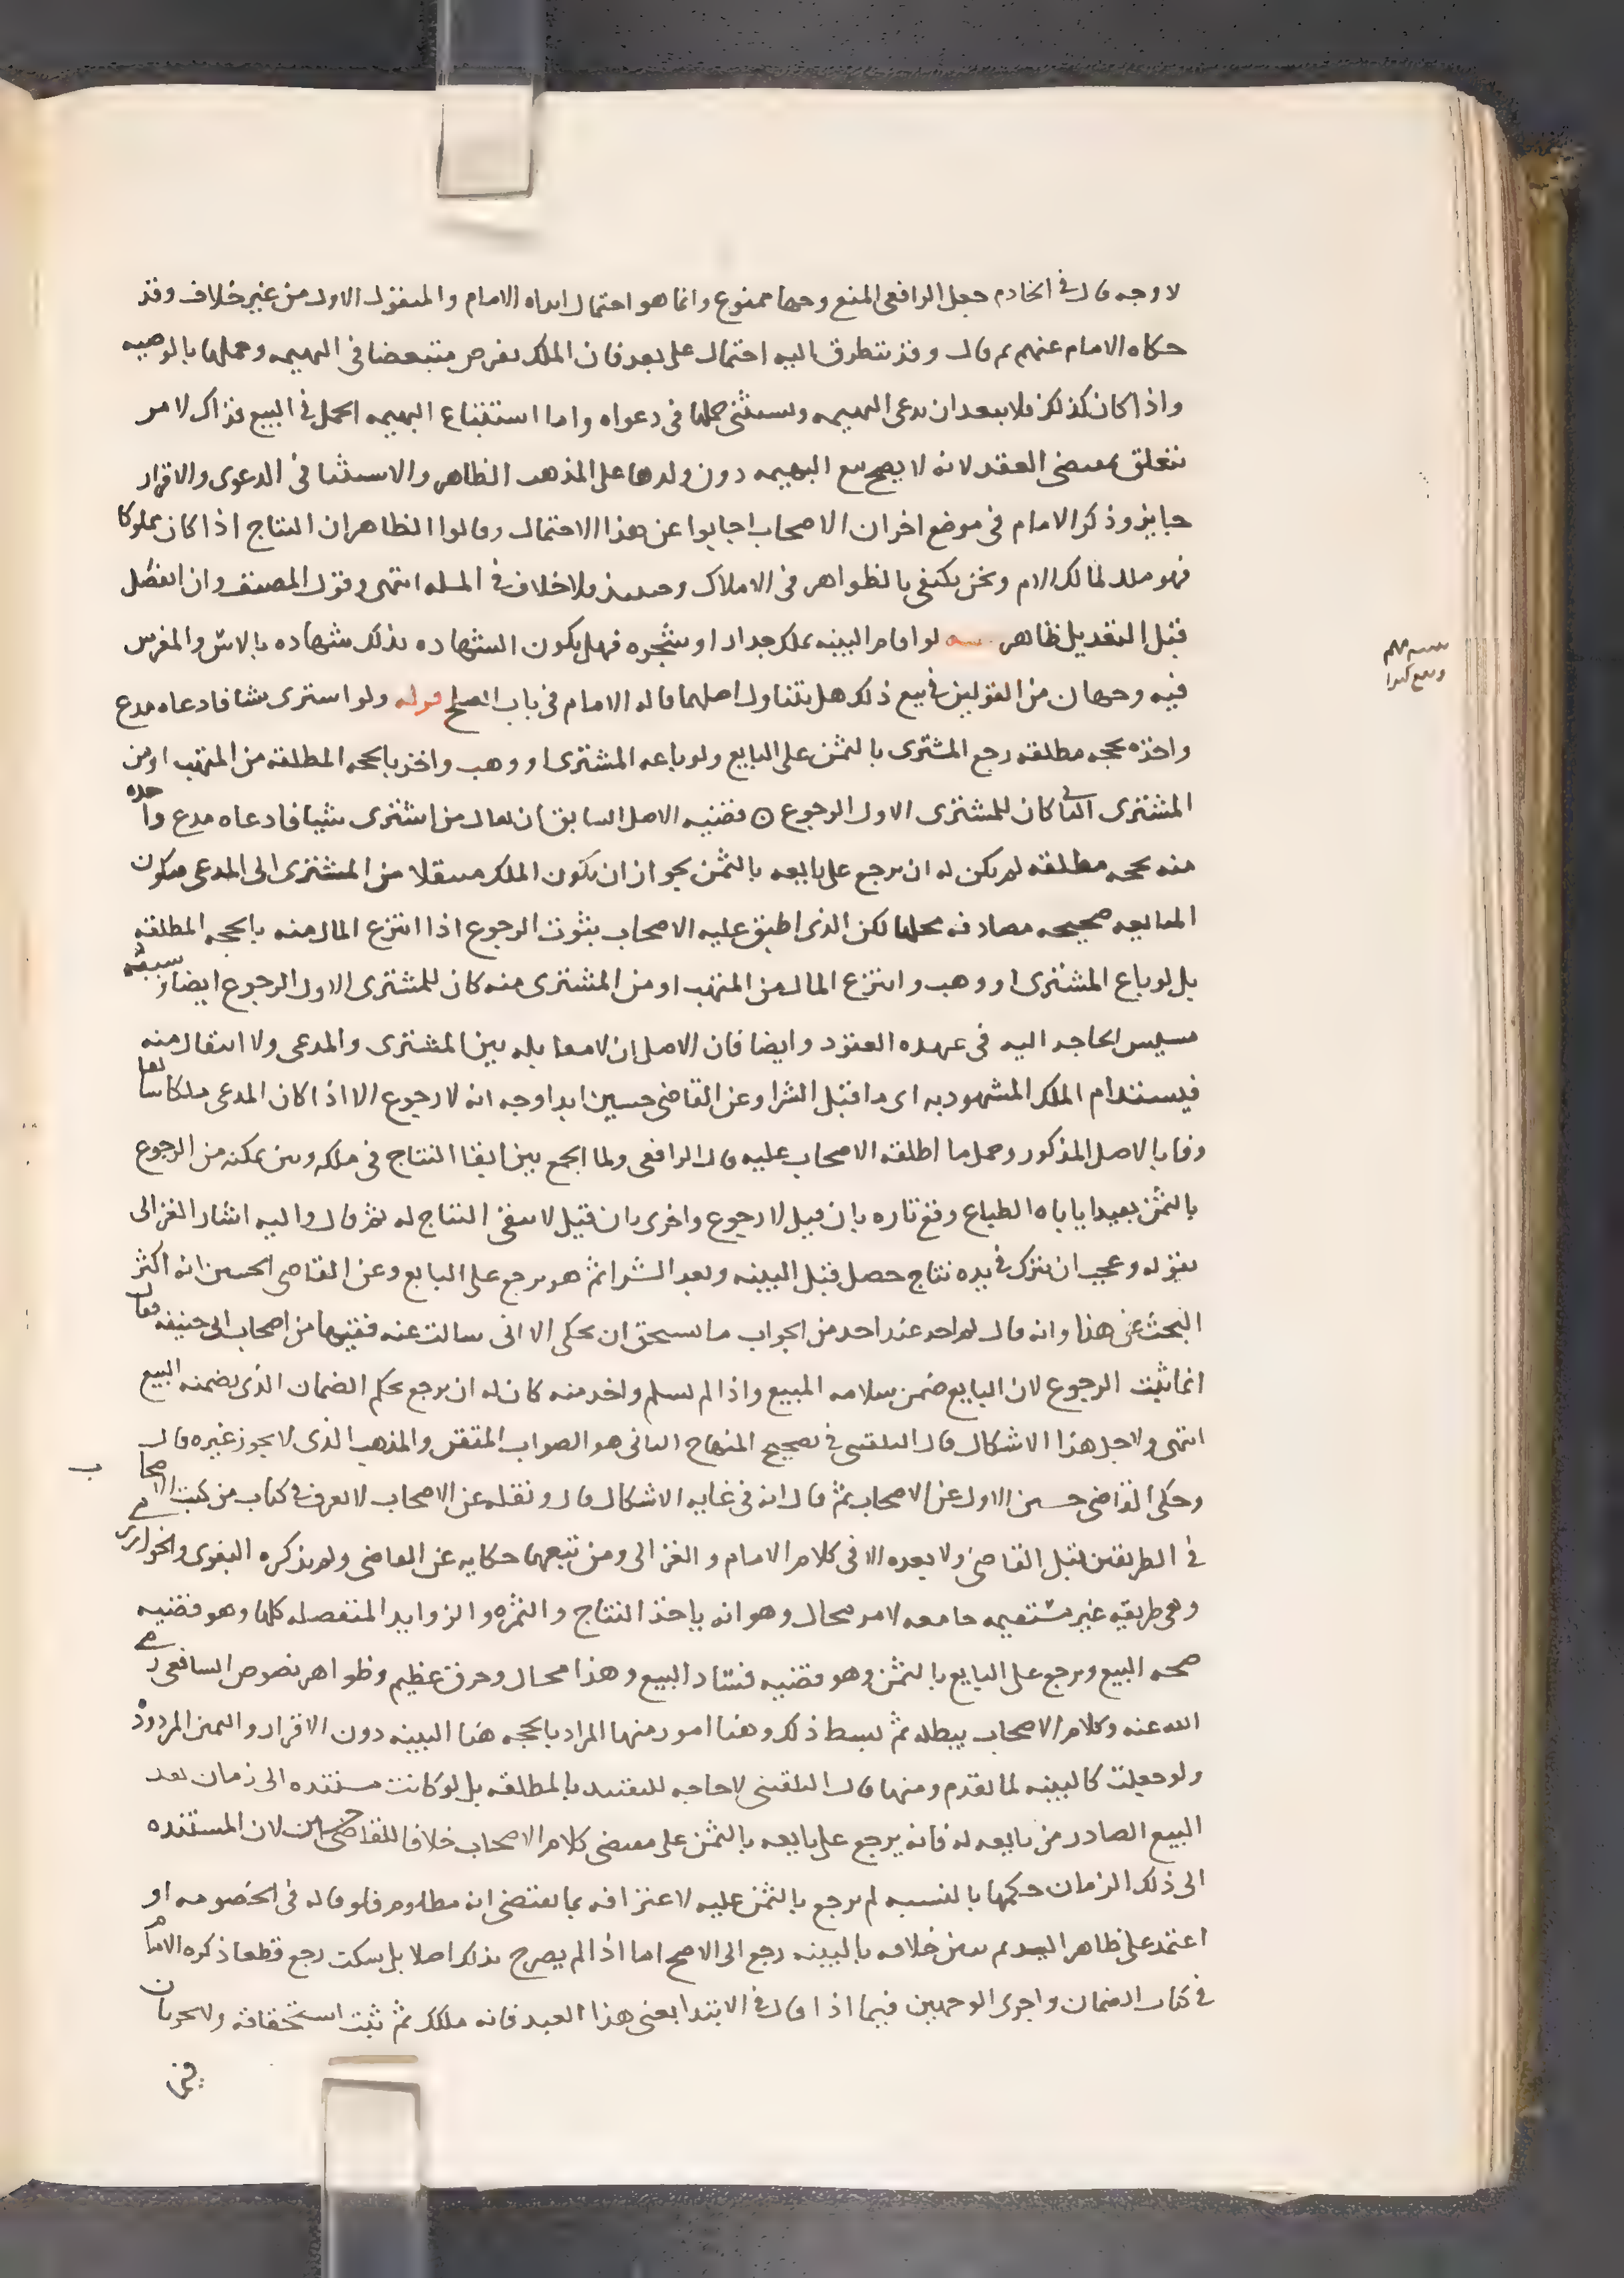 لا وجه قال في الخادم جعل الرافعي المنع وجها ممنوع وانما هو احتمال ابداه الامام والمنقول الاول من غير خلاف وقد
حكاه الامام عنهم ثم قال وقد يتطرق اليه احتمال على بعد فان الملك يفرض متبعضا في البهيمه وحملها بالوصيه
واذا كان كذلك فلا يبعد ان يدعي البهيمه ويستثني حملها في دعواه واما استتباع البهيمه الحمل في البيع فذاك لامر
يتعلق بمقتضى العقد لانه لا يصح بيع البهيمه دون ولدها على المذهب الظاهر والاستثنا في الدعوى والاقرار
جايز وذكر الامام في موضع اخر ان الاصحاب اجابوا عن هذا الاحتمال وقالوا الظاهر ان النتاج اذا كان مملوكا
فهو ملك لمالك الام ونحن نكتفي بالظواهر في الاملاك وحينئذ فلا خلاف في المسله انتهى وقول المصنف وان انفصل
قبل التعديل ظاهر لو اقام البينه بملك جدار او شجره فهل يكون الشهاده بذلك شهاده بالاس والمغرس
فيه وجهان من القولين في بيع ذلك هل يتناول اصلهما قاله الامام في باب الصلح قوله ولو اشترى شيا فادعاه مدع
واخذه بحجه مطلقه رجع المشتري بالثمن على البايع ولو باعه المشتري او وهب واخذ بالحجه المطلقه من المتهب او من
المشتري الثاني كان للمشتري الاول الرجوع ○ قضيه الاصل السابق ان يقال من اشترى شيا فادعاه مدع واخذه
منه بحجه مطلقه لم يكن له ان يرجع على بايعه بالثمن لجواز ان يكون الملك منتقلا من المشتري الى المدعي فتكون
المبايعه صحيحه مصادفه محلها لكن الذي اطبق عليه الاصحاب ثبوت الرجوع اذا انتزع المال منه بالحجه المطلقه
بل لو باع المشتري او وهب وانتزع المال من المتهب او من المشتري منه كان للمشتري الاول الرجوع ايضا وسببه
مسيس الحاجه اليه في عهده العقود وايضا فان الاصل ان لا معامله بين المشتري والمدعي ولا انتقال منه
فيستدام الملك المشهود به اى ما قبل الشرا وعن القاضي حسين ابدا وجه انه لا رجوع الا اذا كان المدعي ملكا سابقا
وفا بالاصل المذكور وحمل ما اطلقه الاصحاب عليه قال الرافعي ولما الجمع بين ابقا النتاج في ملكه وبين تمكنه من الرجوع
بالثمن بعيدا ياباه الطباع وقع تاره بان قيل لا رجوع واخرى بان قيل لا يبقى النتاج له ثم قال واليه اشار الغزالي
بقوله وعجب ان يترك في يده نتاج حصل قبل البينه وبعد الشرا ثم هو يرجع على البايع وعن القاضي الحسين انه اكثر
البحث عن هذا وانه قال لم اجد عند احد من الجواب ما يستحق ان يحكى الا اني سالت عنه فقيها من اصحاب ابي حنيفه فقال
انما يثبت الرجوع لان البايع ضمن سلامه المبيع واذا لم يسلم واخذ منه كان له ان يرجع بحكم الضمان الذي يضمنه البيع
انتهى ولاجل هذا الاشكال قال البلقيني في تصحيح المنهاج الثاني هو الصواب المتقن والمذهب الذي لا يجوز غيره قال
وحكى القاضي حسين الاول عن الاصحاب ثم قال انه في غايه الاشكال قال ونقله عن الاصحاب لا يعرف في كتاب من كتب الاصحاب
في الطريقين قبل القاضي ولا بعده الا في كلام الامام والغزالي ومن تبعهما حكايه عن القاضي ولم يذكره البغوي والخوارزمي
وهي طريقه غير مستقيمه جامعه لامر محال وهو انه ياخذ النتاج والثمره والزوايد المنفصله كلها وهو قضيه
صحه البيع ويرجع على البايع بالثمن وهو قضيه فساد البيع وهذا محال وخرق عظيم وظواهر نصوص الشافعي رضي
الله عنه وكلام الاصحاب يبطله ثم بسط ذلك وهنا امور منها المراد بالحجه هنا البينه دون الاقرار واليمين المردوده
ولو جعلت كالبينه لما تقدم ومنها قال البلقيني لا حاجه للتقييد بالمطلقه بل لو كانت مستنده الى زمان بعد
البيع الصادر من بايعه له فانه يرجع على بايعه بالثمن على مقتضى كلام الاصحاب خلافا للقاضي حسين لان المستنده
الى ذلك الزمان حكمها بالنسبه لم يرجع بالثمن عليه لاعترافه بما يقتضي انه مظلوم فلو قاله في الخصومه او
اعتمد على ظاهر اليد ثم تبين خلافه بالبينه رجع الى الاصح اما اذا لم يصرح بذلك اصلا بل سكت رجع قطعا ذكره الامام
في كتاب الضمان واجرى الوجهين فيما اذا قال في الابتدا بعني هذا العبد فانه ملكك ثم ثبت استحقاقه ولا يجريان
في